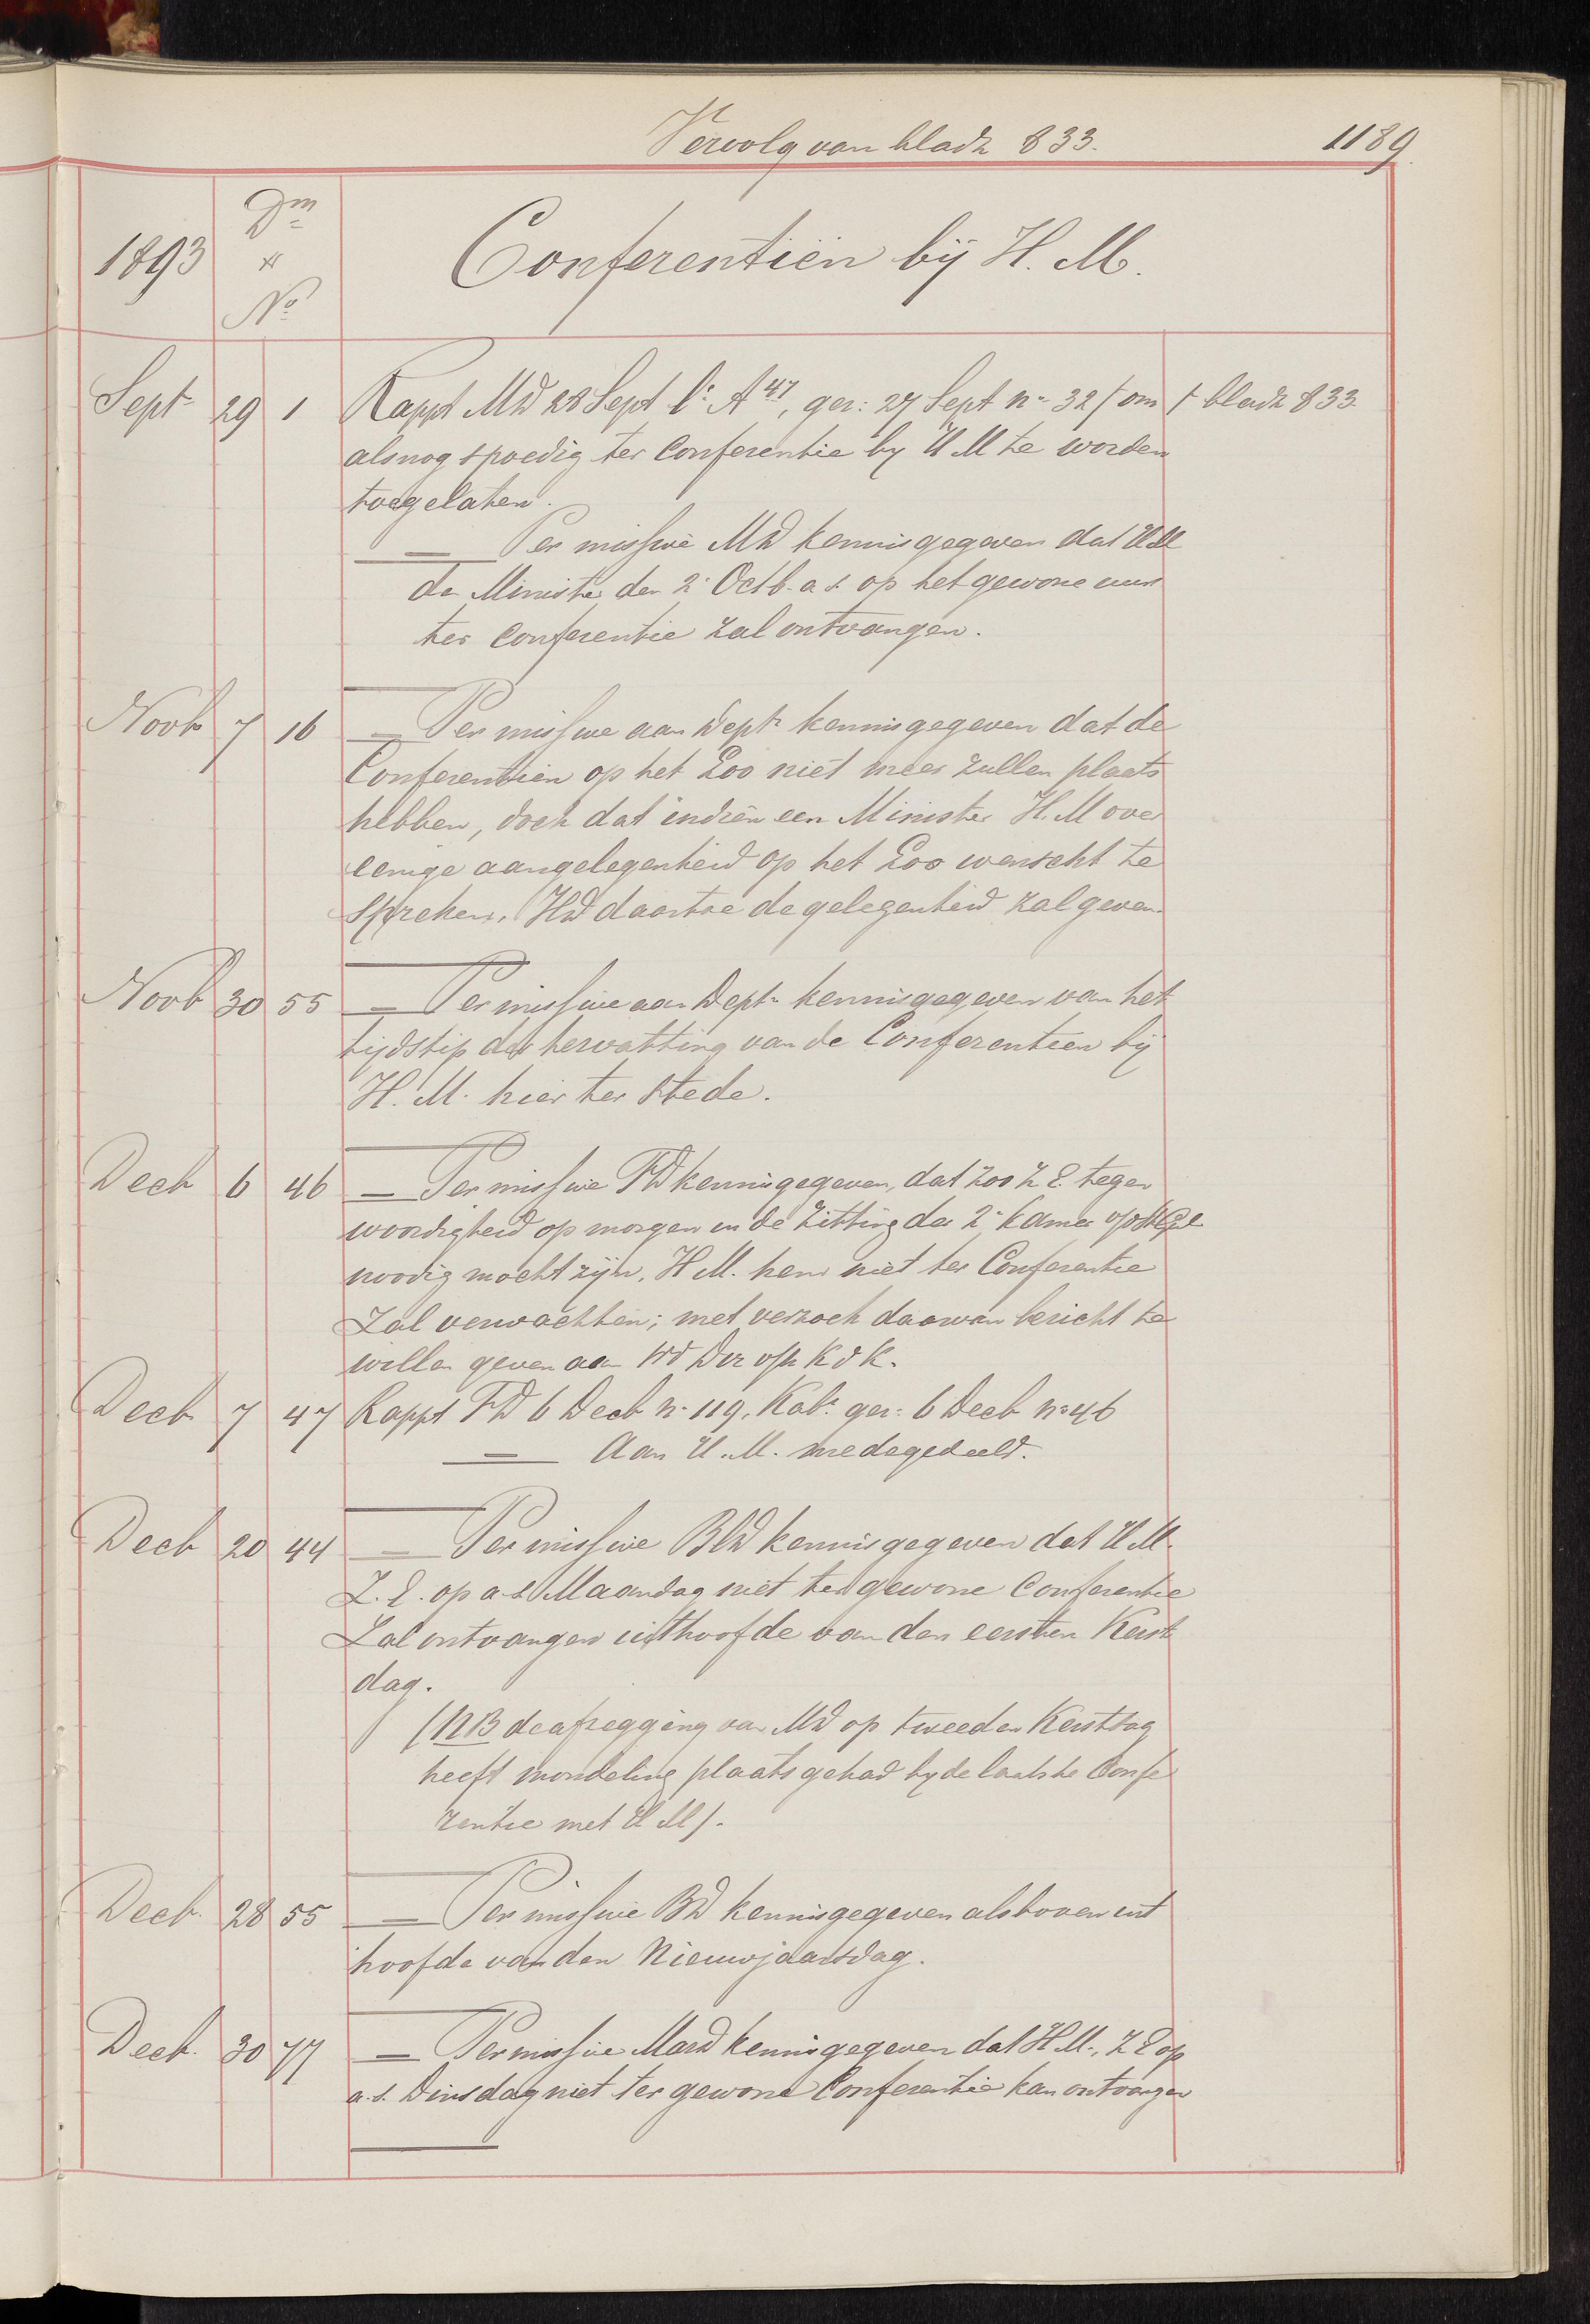 Vervolg van bladz 833.
1189.
1893
Dm
x
No
Conferentiën bij H. M.
Sept 29 1 Rappt MD 28 Sept la A47, ger: 27 Sept no 32/ om
/ bladz 833.
alsnog spoedig ter Conferentie by H M te worden
toegelaten.
— Per missive MD kennisgegeven dat H M
den Minister den 2e Octb. a. s. op het gewone uur
ter Conferentie zal ontvangen.
Novb 7 16 — Per missive aan Deptn kennisgegeven dat de
Conferentiën op het Loo niet meer zullen plaats
hebben, doch dat indien een Minister H. M over
eenige aangelegenheid op het Loo wenscht te
spreken, HD daartoe de gelegenheid zal geven.
Novb 30 55 — Per missive aan Deptn kennisgegeven van het
tijdstip der hervatting van de Conferentien bij
H. M. hier ter stede.
Decb 6 46 — Per missive FD kennisgegeven, dat zoo Z. E. tegen
woordigheid op morgen in de zitting der 2e Kamer
noodig mocht zijn, H M. hem niet ter Conferentie
zal verwachten; met verzoek daarvan bericht te
willen geven aan Dir K d K.
Decb 7 47 Rappt FD 6 Decb no 119, Kabt ger: 6 Decb no 46
— Aan H. M. medegedeeld.
Decb 20 44 — Per missive BZD kennisgegeven dat H M.
Z. E. op a. s. Maandag niet ter gewone Conferentie
zal ontvangen uithoofde van den eersten Kerst
dag.
(NB de afzegging van MD op tweeden Kerstdag
heeft mondeling plaats gehad by de laatste Confe
rentie met H M).
Decb. 28 55 — Per missive BD kennisgegeven als boven uit
hoofde van den Nieuwjaarsdag.
Decb. 30 77 — Per missive MarD kennisgegeven dat H M., Z E op
a. s. Dinsdag niet ter gewone Conferentie kan ontvangen